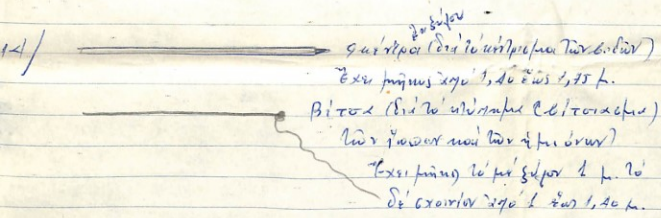 14/
ἐκ ξύλου
Φκέντρα (διὰ τὸ κέντρισμα τῶν βοδῶν)
Ἔχει μῆκος ἀπό 1,40 ἕως 1,75 μ.
Βίτσα (διὰ τὸ κτύπημα (βίτσιασμα)
τῶν ἵππων καὶ τῶν ἡμιόνων)
Ἔχει μῆκος τὸ μὲ ξύλον 1 μ. τὸ
δὲ σχοινίον ἀπό 1 ἕως 1,40 μ.